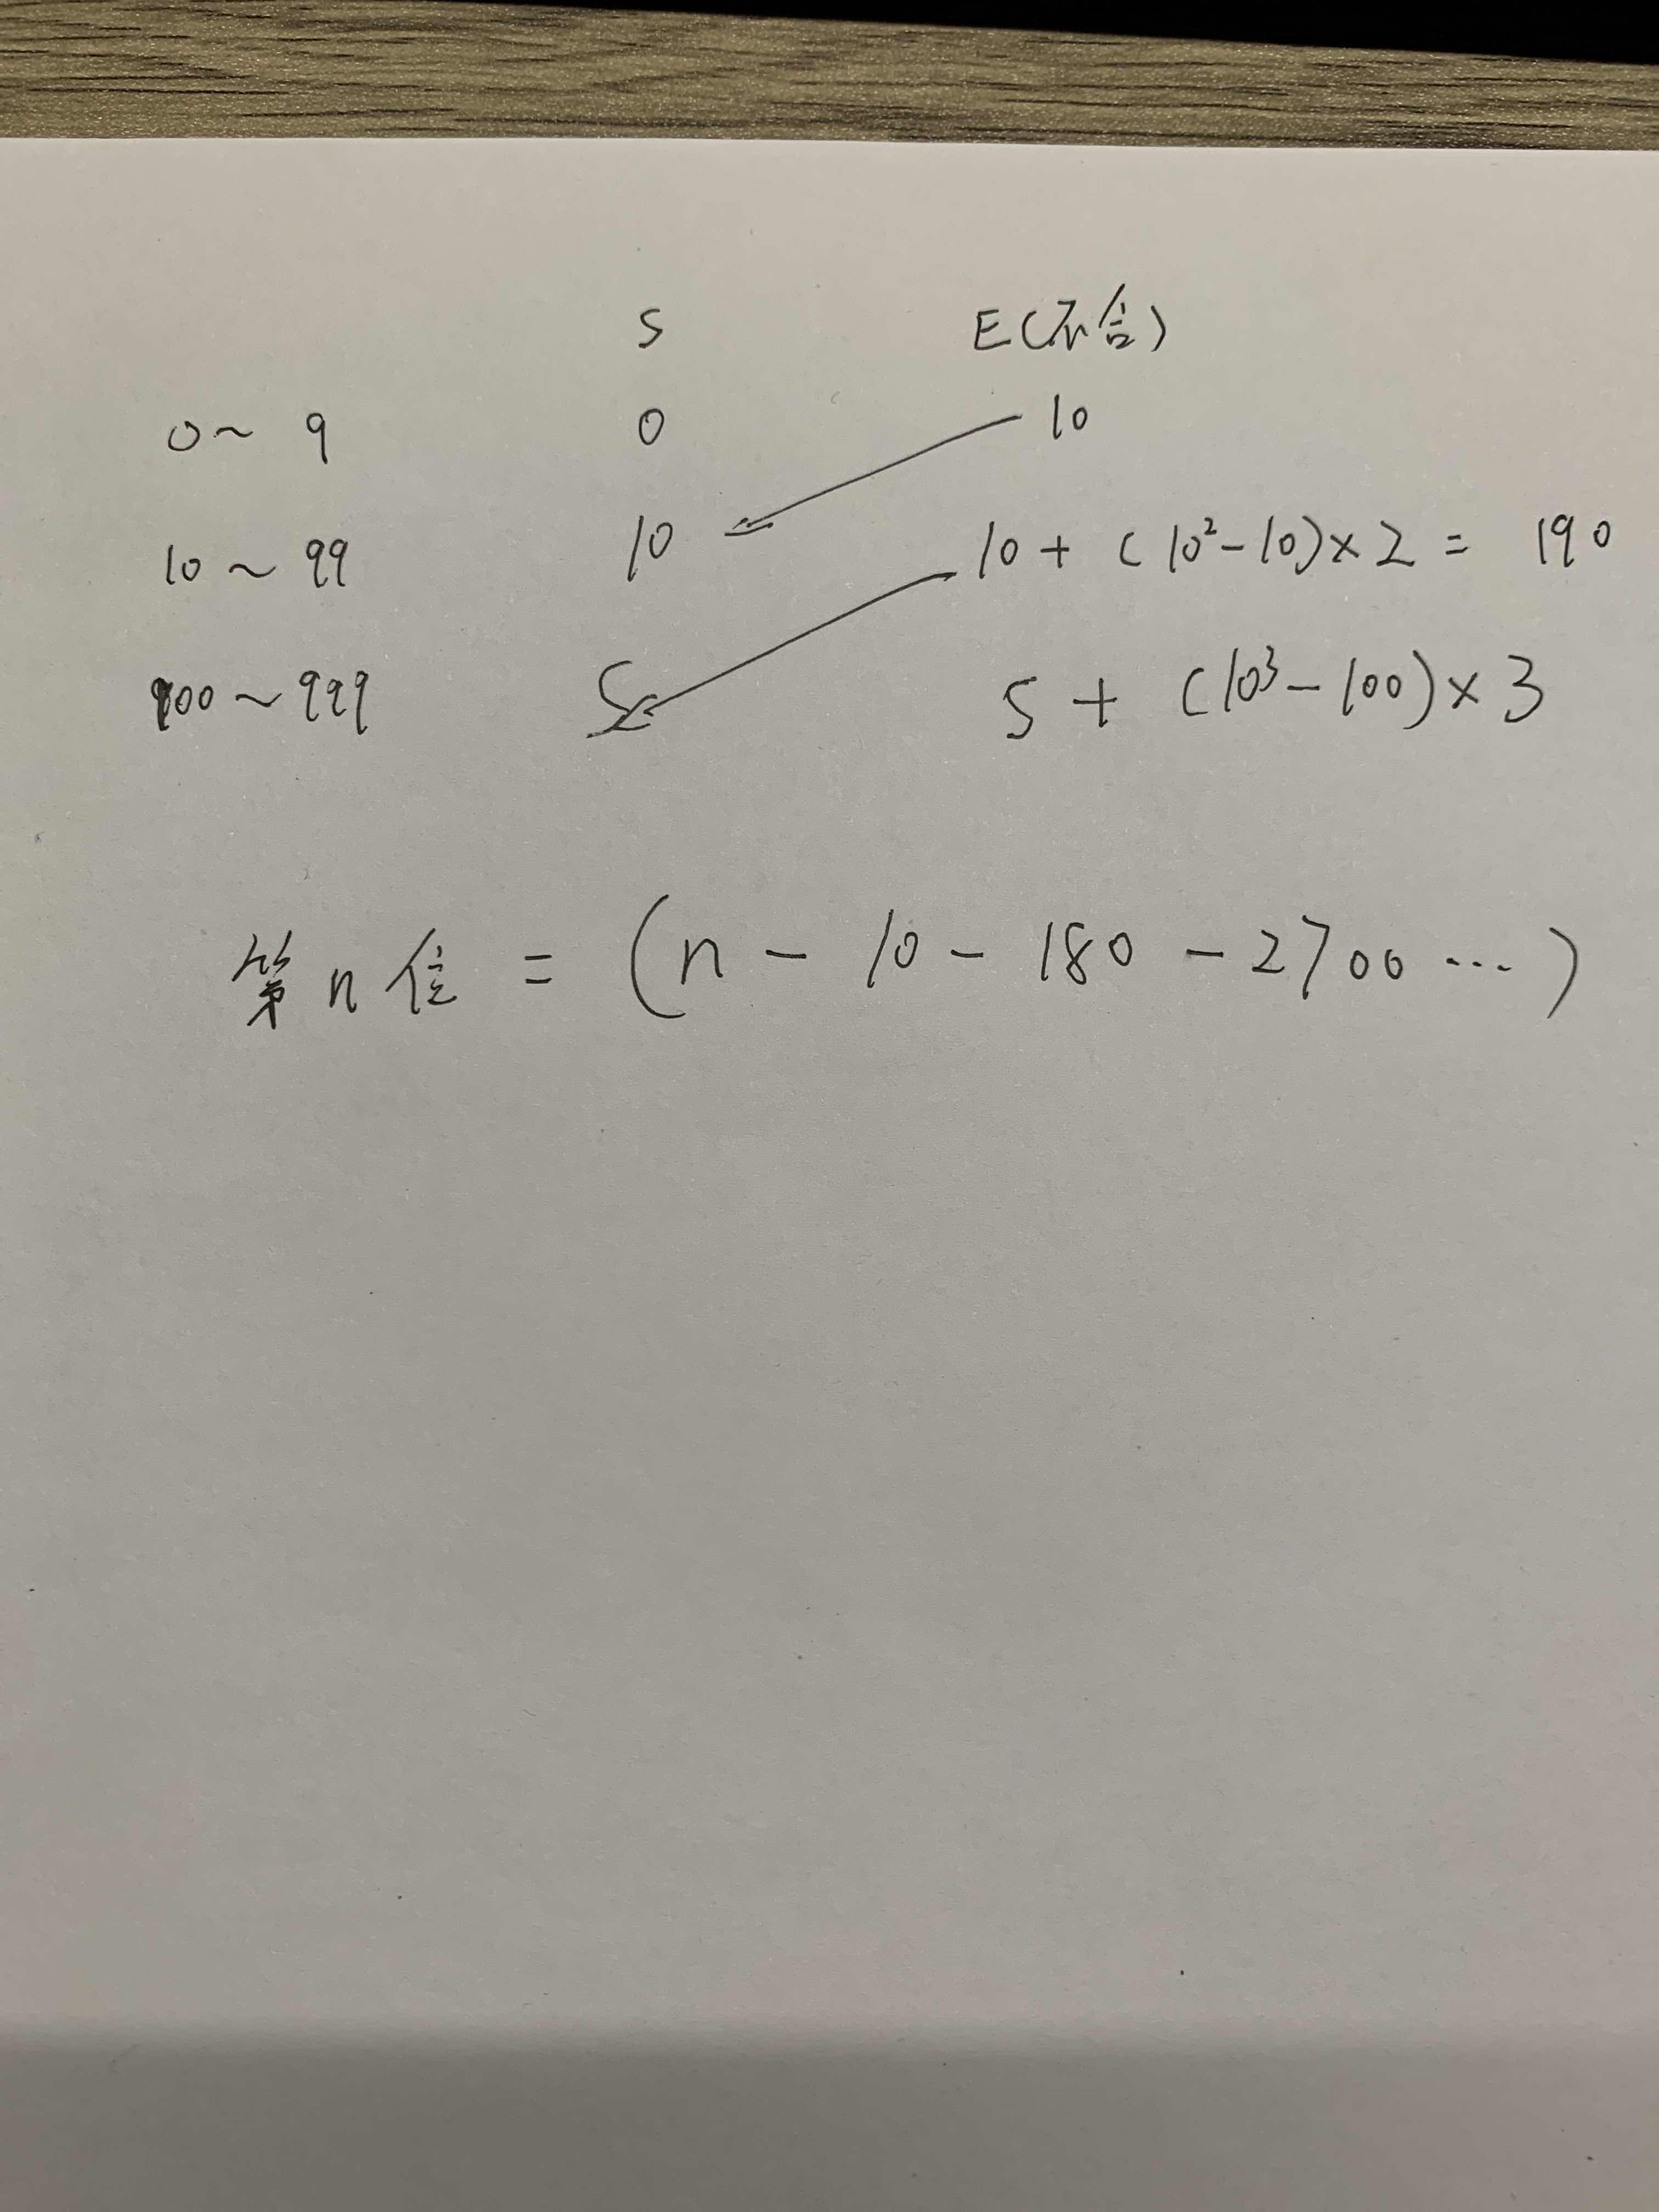 S E(不含)
0~ 9 0 10
10 ~ 99 10 10 + (10²-10)×2 = 190
100 ~ 999 S S + (10³-100)×3
第n位 = (n - 10 - 180 - 2700 ...)